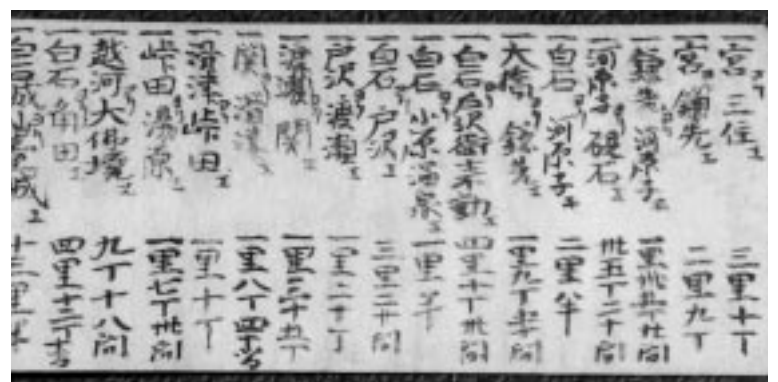 一宮ヨリ三住エ 三里十丁
一宮ヨリ鎌先エ 二里九丁
一鎌先ヨリ河原子エ 一里卅五丁廿間
一河原子ヨリ硯石エ 卅五丁二十間
一白石ヨリ河原子エ 二里半
一大鷹ヨリ鎌先エ 一里九丁
一白石ヨリ戸沢街不動エ 四里十丁卅間
一白石ヨリ小原湯泉エ 一里半
一白石ヨリ戸沢エ 三里二丁間
一戸沢ヨリ渡瀬エ 一里二十丁
一渡瀬ヨリ関エ 一里三十五丁
一関ヨリ滑津エ 一里八丁四十
一滑津ヨリ峠田エ 一里十丁
一峠田ヨリ湯原エ 一里七丁卅間
一越河ヨリ大仏境エ 九丁十八間
一白石ヨリ角田エ 四里十二丁
一白石城 城エ 十三里半